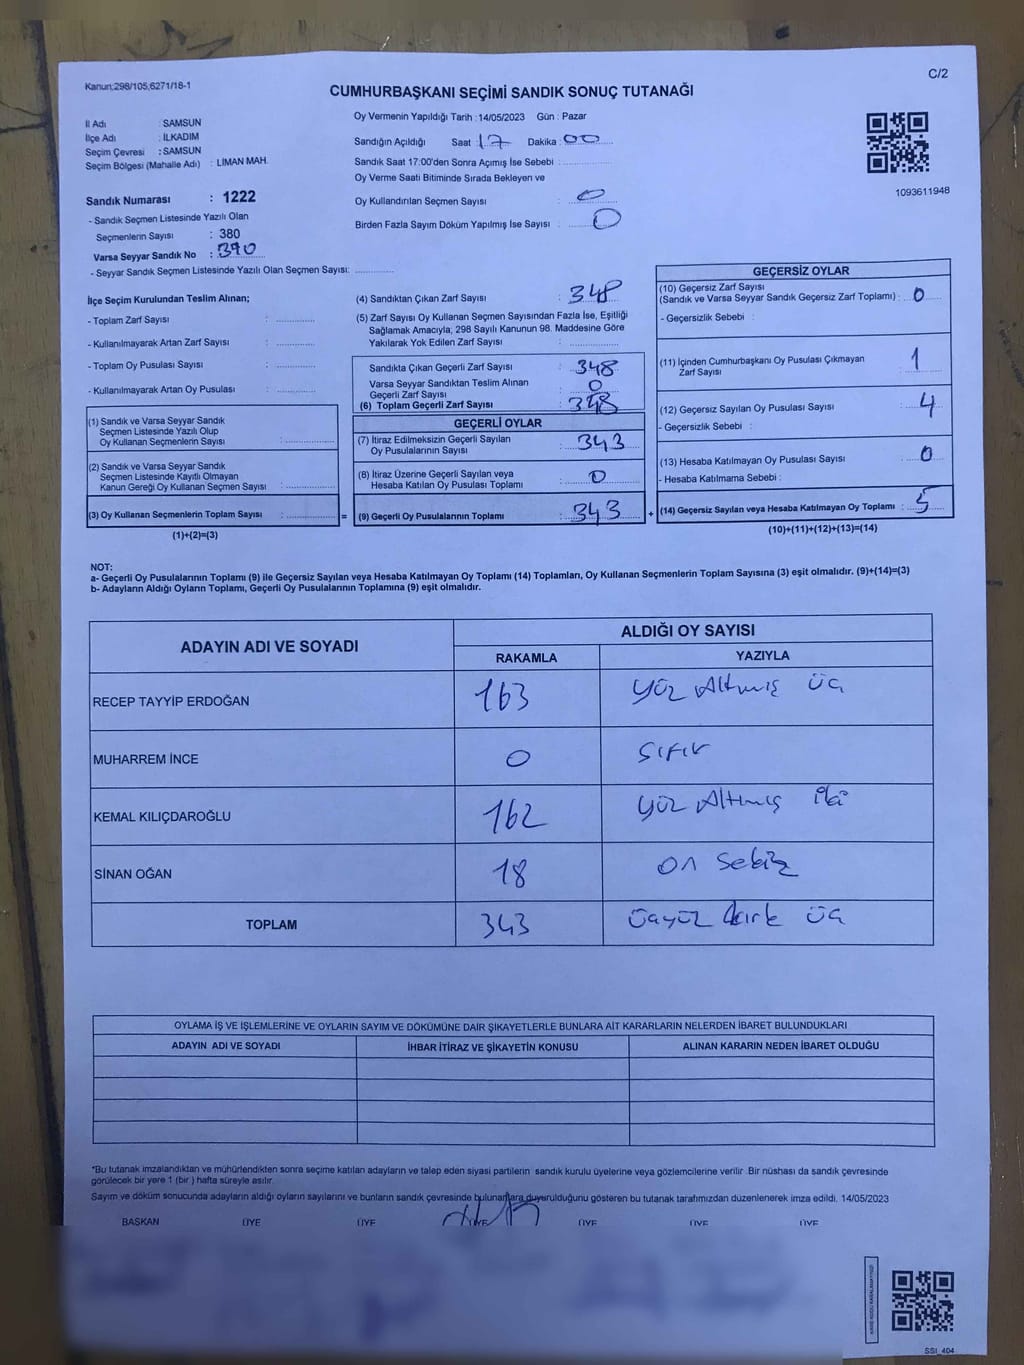 Kanun;298/105,6271/18-1
C/2
CUMHURBAŞKANI SEÇİMİ SANDIK SONUÇ TUTANAĞI
İl Adı : SAMSUN
İlçe Adı : İLKADIM
Seçim Çevresi : SAMSUN
Seçim Bölgesi (Mahalle Adı) : LİMAN MAH.
Sandık Numarası : 1222
- Sandık Seçmen Listesinde Yazılı Olan
Seçmenlerin Sayısı : 380
Varsa Seyyar Sandık No : 390
- Seyyar Sandık Seçmen Listesinde Yazılı Olan Seçmen Sayısı:
Oy Vermenin Yapıldığı Tarih : 14/05/2023 Gün : Pazar
Sandığın Açıldığı Saat : 17 Dakika : 00
Sandık Saat 17:00'den Sonra Açımış İse Sebebi :
Oy Verme Saati Bitiminde Sırada Bekleyen ve
Oy Kullandırılan Seçmen Sayısı : 0
Birden Fazla Sayım Döküm Yapılmış İse Sayısı : 0
1093611948
İlçe Seçim Kurulundan Teslim Alınan;
- Toplam Zarf Sayısı :
- Kullanılmayarak Artan Zarf Sayısı :
- Toplam Oy Pusulası Sayısı :
- Kullanılmayarak Artan Oy Pusulası :
(1) Sandık ve Varsa Seyyar Sandık
Seçmen Listesinde Yazılı Olup
Oy Kullanan Seçmenlerin Sayısı :
(2) Sandık ve Varsa Seyyar Sandık
Seçmen Listesinde Kayıtlı Olmayan
Kanun Gereği Oy Kullanan Seçmen Sayısı :
(3) Oy Kullanan Seçmenlerin Toplam Sayısı : =
(1)+(2)=(3)
(4) Sandıktan Çıkan Zarf Sayısı : 348
(5) Zarf Sayısı Oy Kullanan Seçmen Sayısından Fazla İse, Eşitliği
Sağlamak Amacıyla, 298 Sayılı Kanunun 98. Maddesine Göre
Yakılarak Yok Edilen Zarf Sayısı :
Sandıkta Çıkan Geçerli Zarf Sayısı : 348
Varsa Seyyar Sandıktan Teslim Alınan
Geçerli Zarf Sayısı : 0
(6) Toplam Geçerli Zarf Sayısı : 348
GEÇERLİ OYLAR
(7) İtiraz Edilmeksizin Geçerli Sayılan
Oy Pusulalarının Sayısı : 343
(8) İtiraz Üzerine Geçerli Sayılan veya
Hesaba Katılan Oy Pusulası Toplamı : 0
(9) Geçerli Oy Pusulalarının Toplamı : 343 +
GEÇERSİZ OYLAR
(10) Geçersiz Zarf Sayısı
(Sandık ve Varsa Seyyar Sandık Geçersiz Zarf Toplamı) : 0
- Geçersizlik Sebebi :
(11) İçinden Cumhurbaşkanı Oy Pusulası Çıkmayan
Zarf Sayısı : 1
(12) Geçersiz Sayılan Oy Pusulası Sayısı : 4
- Geçersizlik Sebebi :
(13) Hesaba Katılmayan Oy Pusulası Sayısı : 0
- Hesaba Katılmama Sebebi :
(14) Geçersiz Sayılan veya Hesaba Katılmayan Oy Toplamı : 5
(10)+(11)+(12)+(13)=(14)
NOT:
a- Geçerli Oy Pusulalarının Toplamı (9) ile Geçersiz Sayılan veya Hesaba Katılmayan Oy Toplamı (14) Toplamları, Oy Kullanan Seçmenlerin Toplam Sayısına (3) eşit olmalıdır. (9)+(14)=(3)
b- Adayların Aldığı Oyların Toplamı, Geçerli Oy Pusulalarının Toplamına (9) eşit olmalıdır.
ADAYIN ADI VE SOYADI
ALDIĞI OY SAYISI
RAKAMLA YAZIYLA
RECEP TAYYİP ERDOĞAN 163 Yüz Altmış üç
MUHARREM İNCE 0 Sıfır
KEMAL KILIÇDAROĞLU 162 Yüz Altmış iki
SİNAN OĞAN 18 on Sekiz
TOPLAM 343 üçyüz kırk üç
OYLAMA İŞ VE İŞLEMLERİNE VE OYLARIN SAYIM VE DÖKÜMÜNE DAİR ŞİKAYETLERLE BUNLARA AİT KARARLARIN NELERDEN İBARET BULUNDUKLARI
ADAYIN ADI VE SOYADI İHBAR İTİRAZ VE ŞİKAYETİN KONUSU ALINAN KARARIN NEDEN İBARET OLDUĞU
*Bu tutanak imzalandıktan ve mühürlendikten sonra seçime katılan adayların ve talep eden siyasi partilerin sandık kurulu üyelerine veya gözlemcilerine verilir .Bir nüshası da sandık çevresinde
görülecek bir yere 1 (bir ) hafta süreyle asılır.
Sayım ve döküm sonucunda adayların aldığı oyların sayılarını ve bunların sandık çevresinde bulunanlara duyurulduğunu gösteren bu tutanak tarafımızdan düzenlenerek imza edildi. 14/05/2023
BAŞKAN ÜYE ÜYE ÜYE ÜYE ÜYE ÜYE
SSI_404